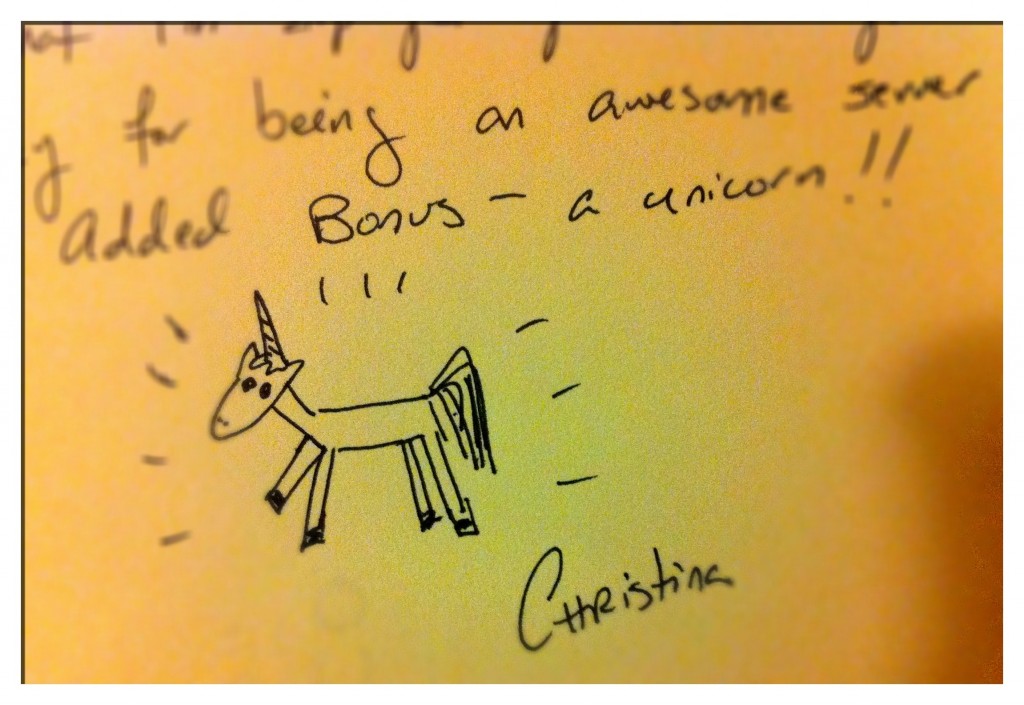 for being an awesome server
Added Bonus - a unicorn!!
Christina